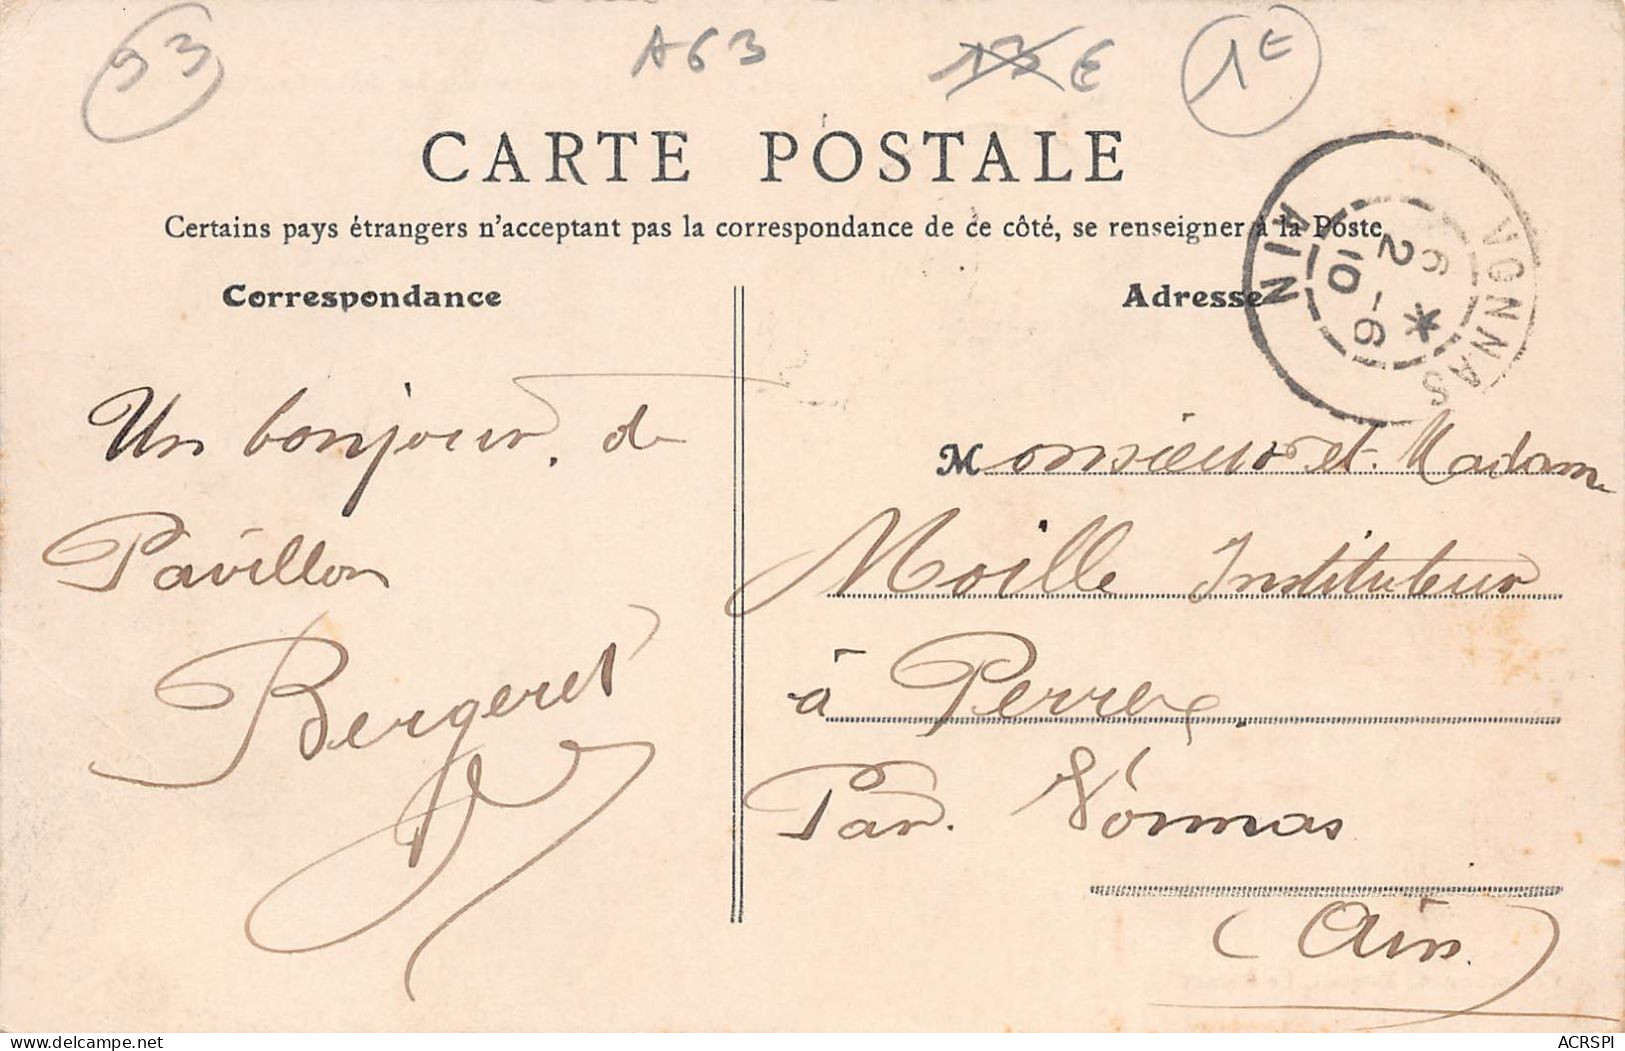 53
A63
13 €
1€
CARTE POSTALE
Certains pays étrangers n'acceptant pas la correspondance de ce côté, se renseigner à la Poste
Correspondance
Adresse
VONNAS
AIN
Un bonjour. de
Pavillon
Bergeret
Monsieur et Madame
Moille Instituteur
à Perrex
Par. Vonnas
(Ain)
ACRSPI